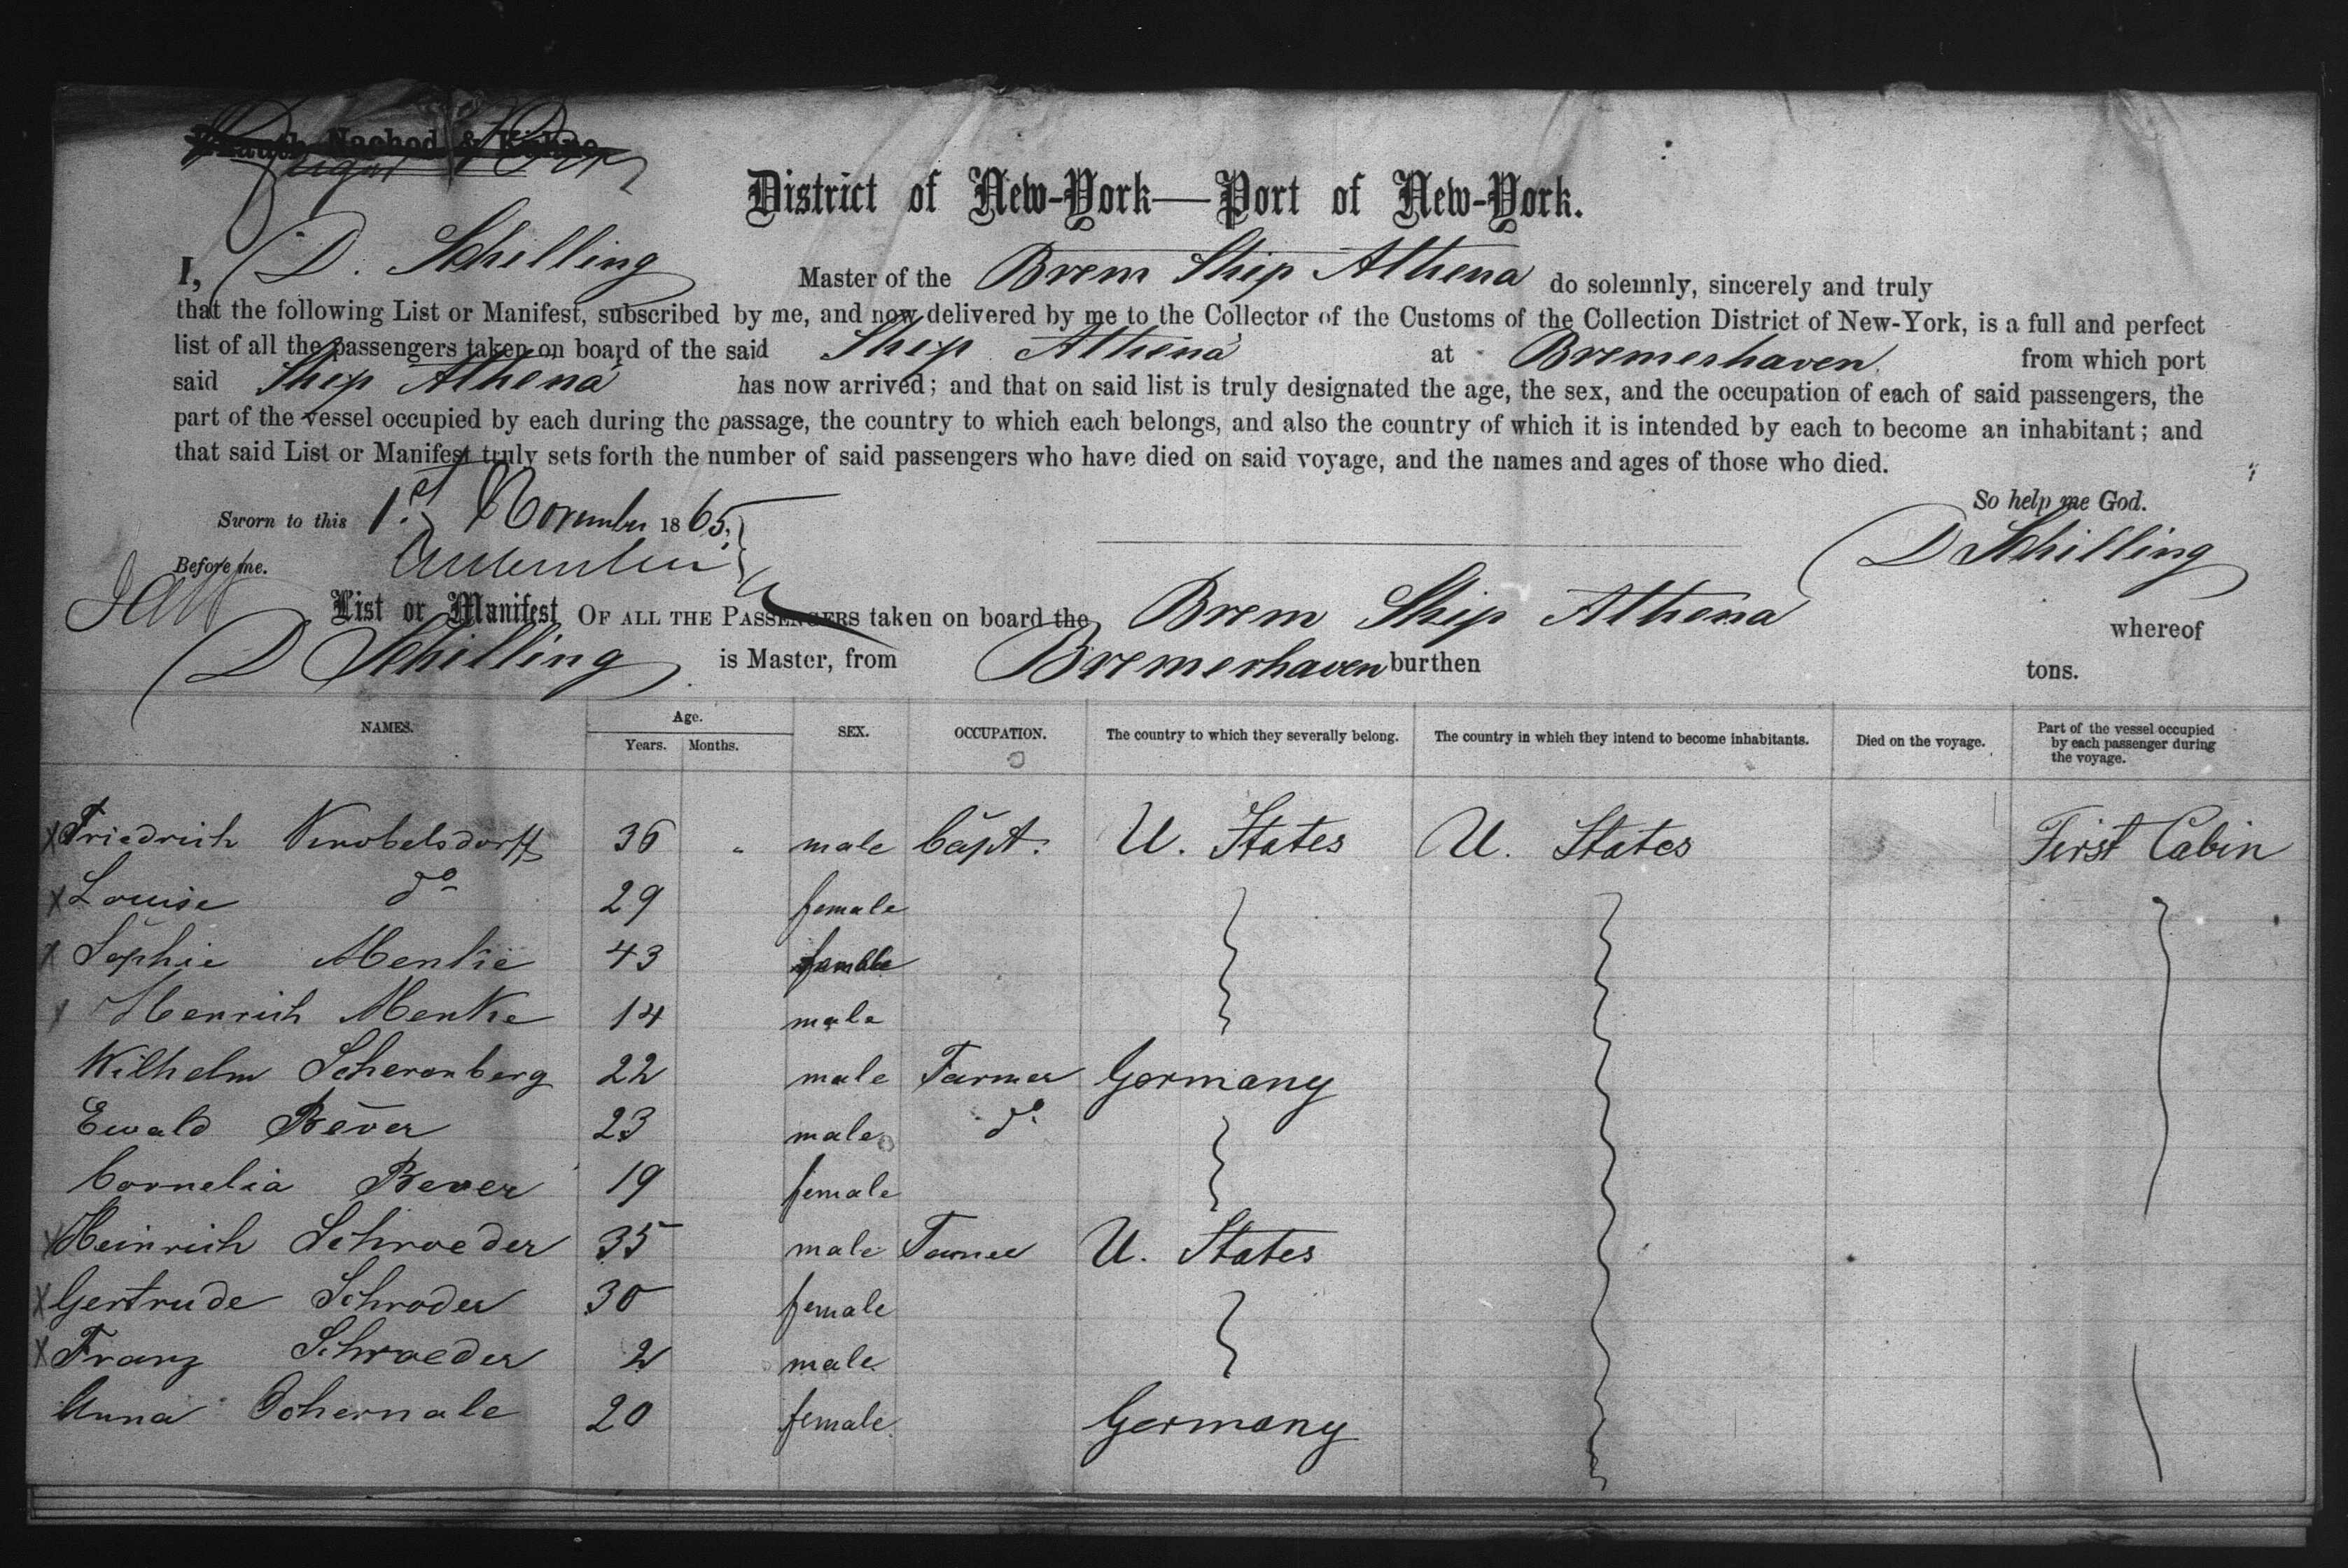 Nachod &
District of New-York—Port of New-York.
I, D. Schilling Master of the Brem Ship Athena do solemnly, sincerely and truly
that the following List or Manifest, subscribed by me, and now delivered by me to the Collector of the Customs of the Collection District of New-York, is a full and perfect
list of all the passengers taken on board of the said Ship Athena at Bremerhaven from which port
said Ship Athena has now arrived; and that on said list is truly designated the age, the sex, and the occupation of each of said passengers, the
part of the vessel occupied by each during the passage, the country to which each belongs, and also the country of which it is intended by each to become an inhabitant; and
that said List or Manifest truly sets forth the number of said passengers who have died on said voyage, and the names and ages of those who died.
So help me God.
Sworn to this 1st November 1865.
D Schilling
Before me.
List or Manifest OF ALL THE PASSENGERS taken on board the Brem Ship Athena whereof
D Schilling is Master, from Bremerhaven burthen tons.
NAMES. Age. Years. Months. SEX. OCCUPATION. The country to which they severally belong. The country in which they intend to become inhabitants. Died on the voyage. Part of the vessel occupied by each passenger during the voyage.
x Friedrich Knobelsdorff 36 " male Capt. U. States U. States First Cabin
x Louise do 29 female
x Sophie Menke 43 female
x Henrich Menke 14 male
Wilhelm Scherenberg 22 male Farmer Germany
Ewald Bever 23 male do
Cornelia Bever 19 female
x Heinrich Schroeder 35 male Farmer U. States
x Gertrude Schroder 30 female
x Franz Schroeder 2 male
Anna 20 female Germany